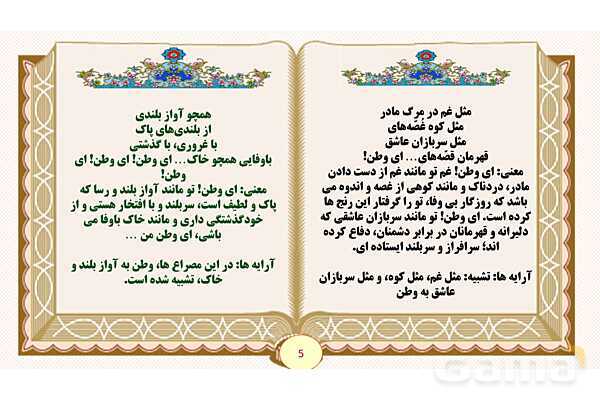 مثل غم در مرگ مادر
مثل کوه غُصّه‌های
مثل سربازان عاشق
قهرمان قصّه‌های... ای وطن!
معنی: ای وطن! غم تو مانند غم از دست دادن
مادر، دردناک و مانند کوهی از غصه و اندوه می
باشد که روزگار بی وفا، تو را گرفتار این رنج ها
کرده است. ای وطن! تو مانند سربازان عاشقی که
دلیرانه و قهرمانان در برابر دشمنان، دفاع کرده
اند؛ سرافراز و سربلند ایستاده ای.
آرایه ها: تشبیه: مثل غم، مثل کوه، و مثل سربازان
عاشق به وطن
همچو آواز بلندی
از بلندی‌های پاک
با غروری، با گذشتی
باوفایی همچو خاک... ای وطن! ای وطن! ای
وطن!
معنی: ای وطن! تو مانند آواز بلند و رسا که
پاک و لطیف است، سربلند و با افتخار هستی و از
خودگذشتگی داری و مانند خاک باوفا می
باشی، ای وطن من ...
آرایه ها: در این مصراع ها، وطن به آواز بلند و
خاک، تشبیه شده است.
5
Gama